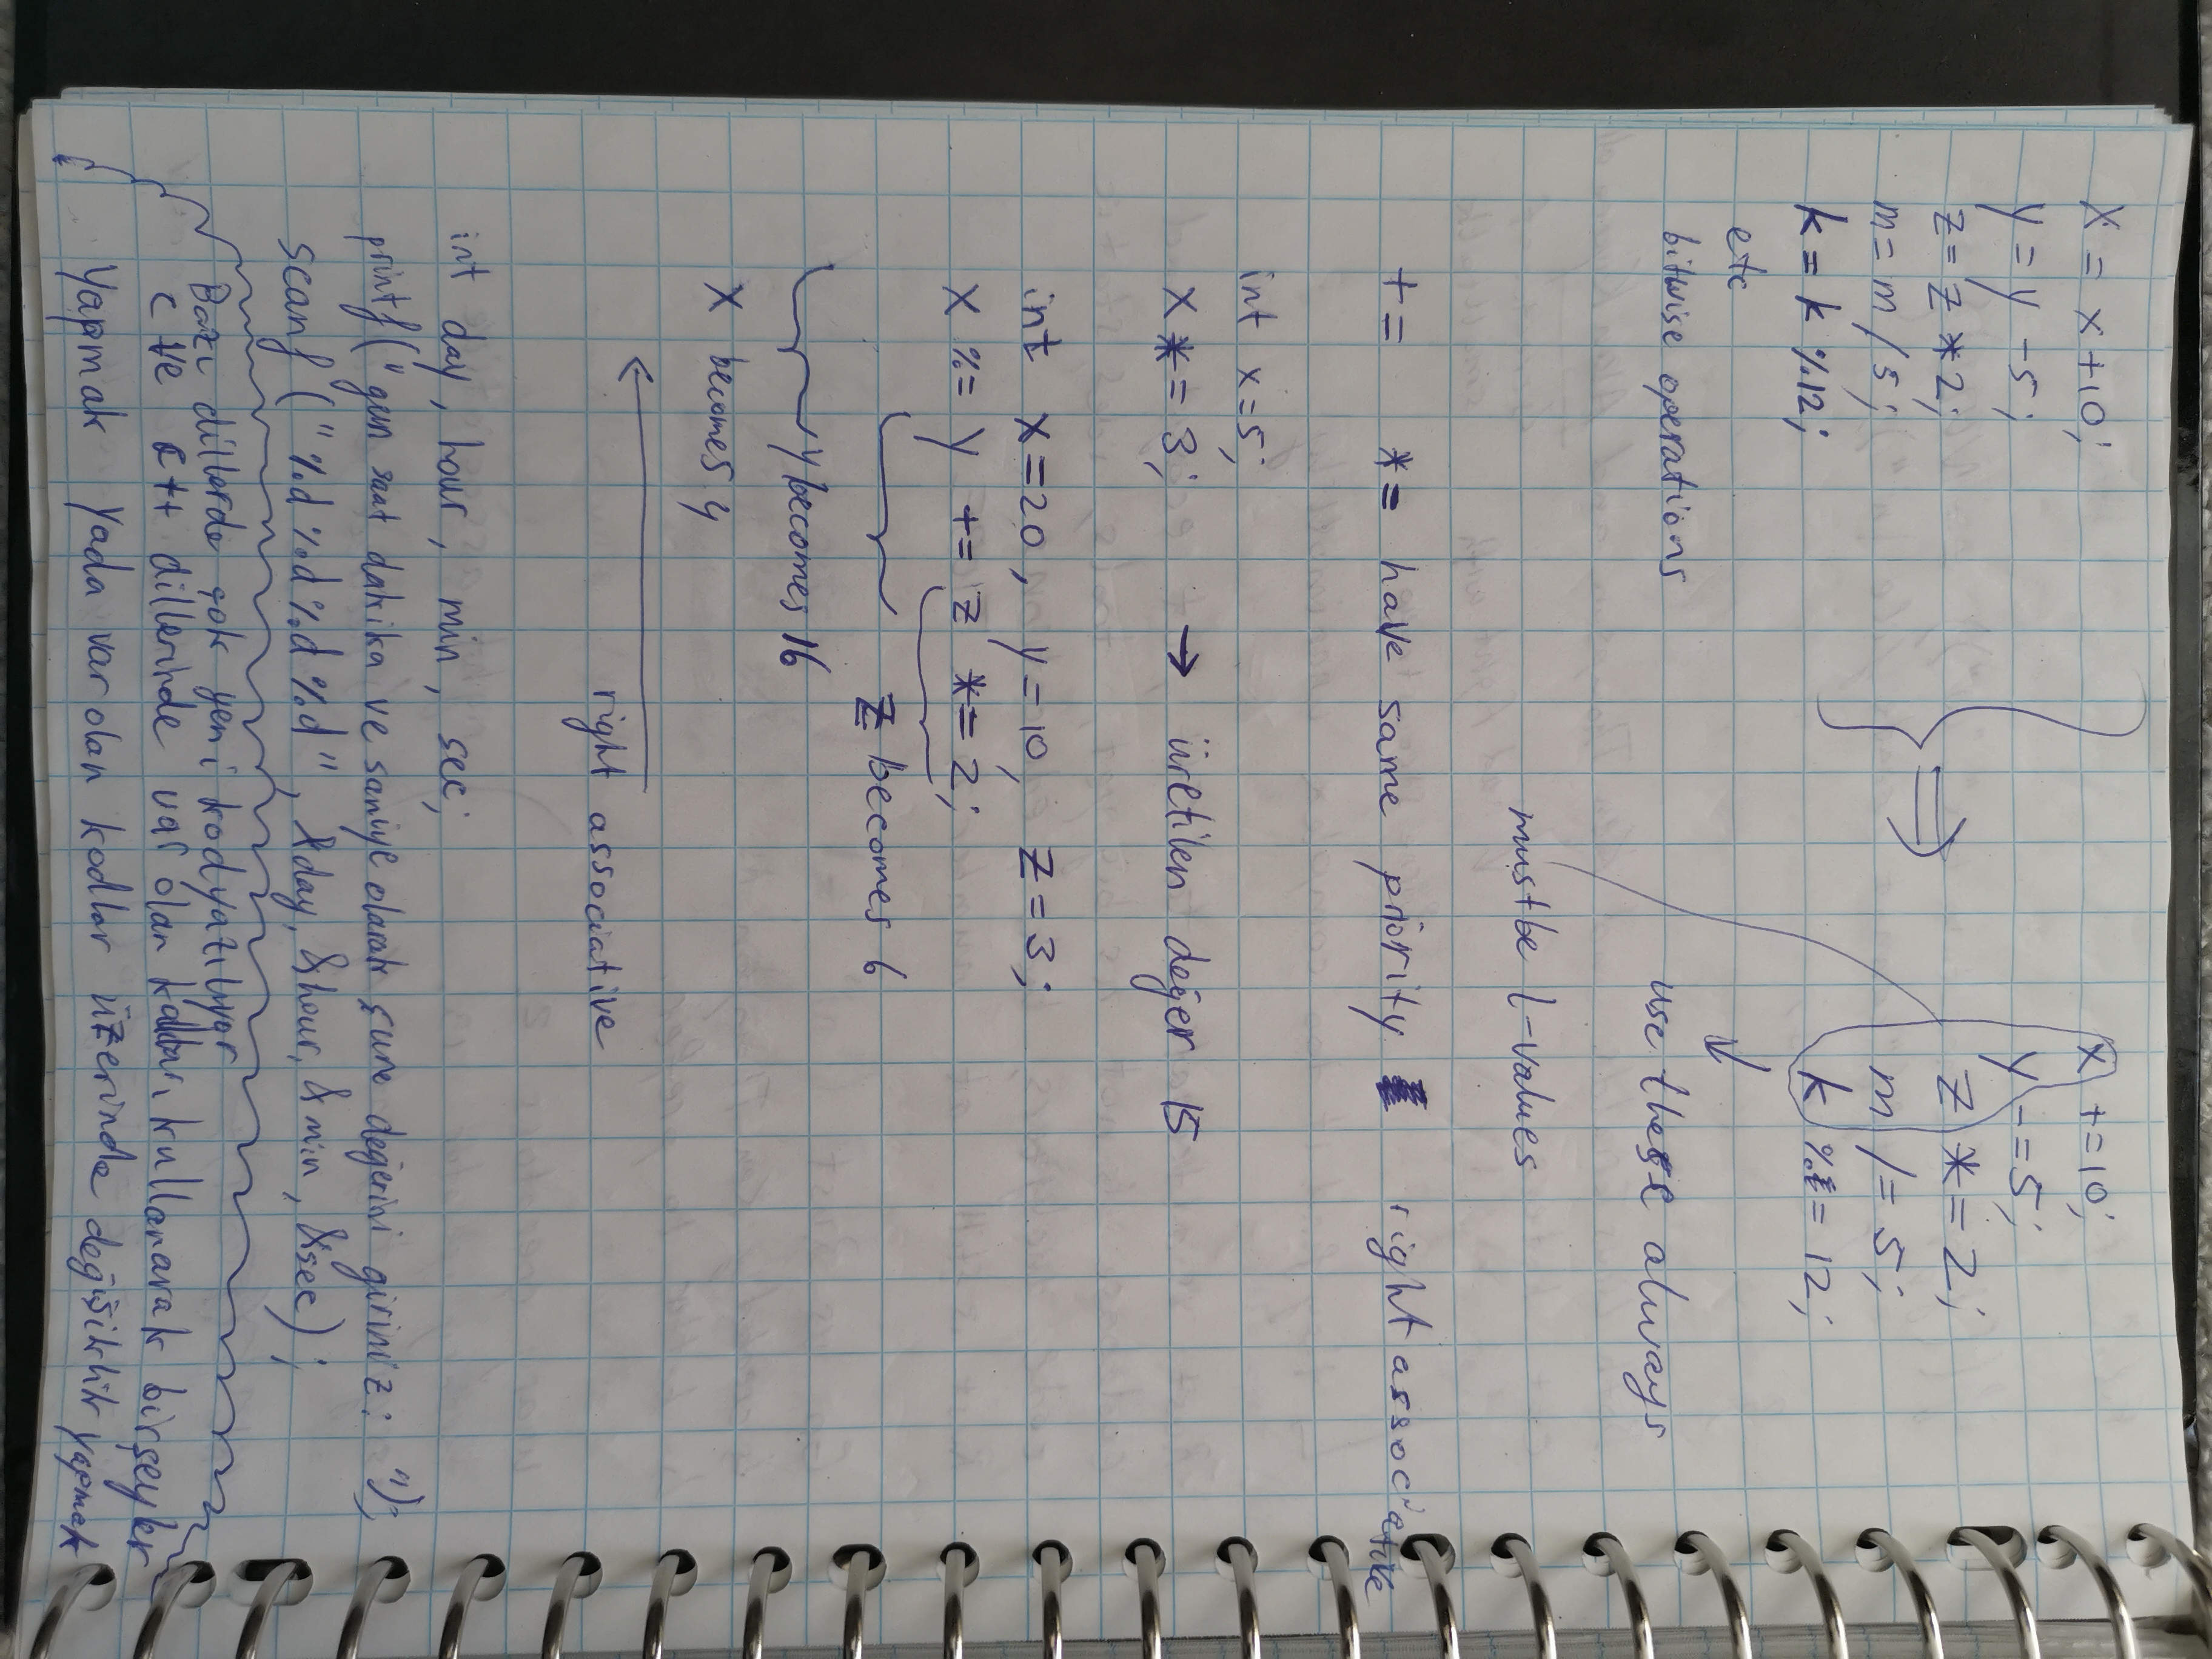 x = x +10;
y = y -5;
z = z * 2;
m = m / 5;
k = k %12;
etc
bitwise operations
x +=10;
y -=5;
z *= 2;
m /= 5;
k %= 12;
use these always
must be l-values
+= *= have same priority right associative
int x=5;
x *= 3; → üretilen değer 15
int x=20, y=10, z=3;
x %= y += z *= 2;
z becomes 6
y becomes 16
x becomes 4
right associative
int day, hour, min, sec;
printf("gun saat dakika ve saniye olarak sure değerini giriniz: ");
scanf ("%d %d %d %d", &day, &hour, &min, &sec);
Bazı dillerde çok yeni kod yazılıyor
c ve c++ dillerinde var olan kullanarak birşeyler
yapmak yada var olan kodlar üzerinde değişiklik yapmak